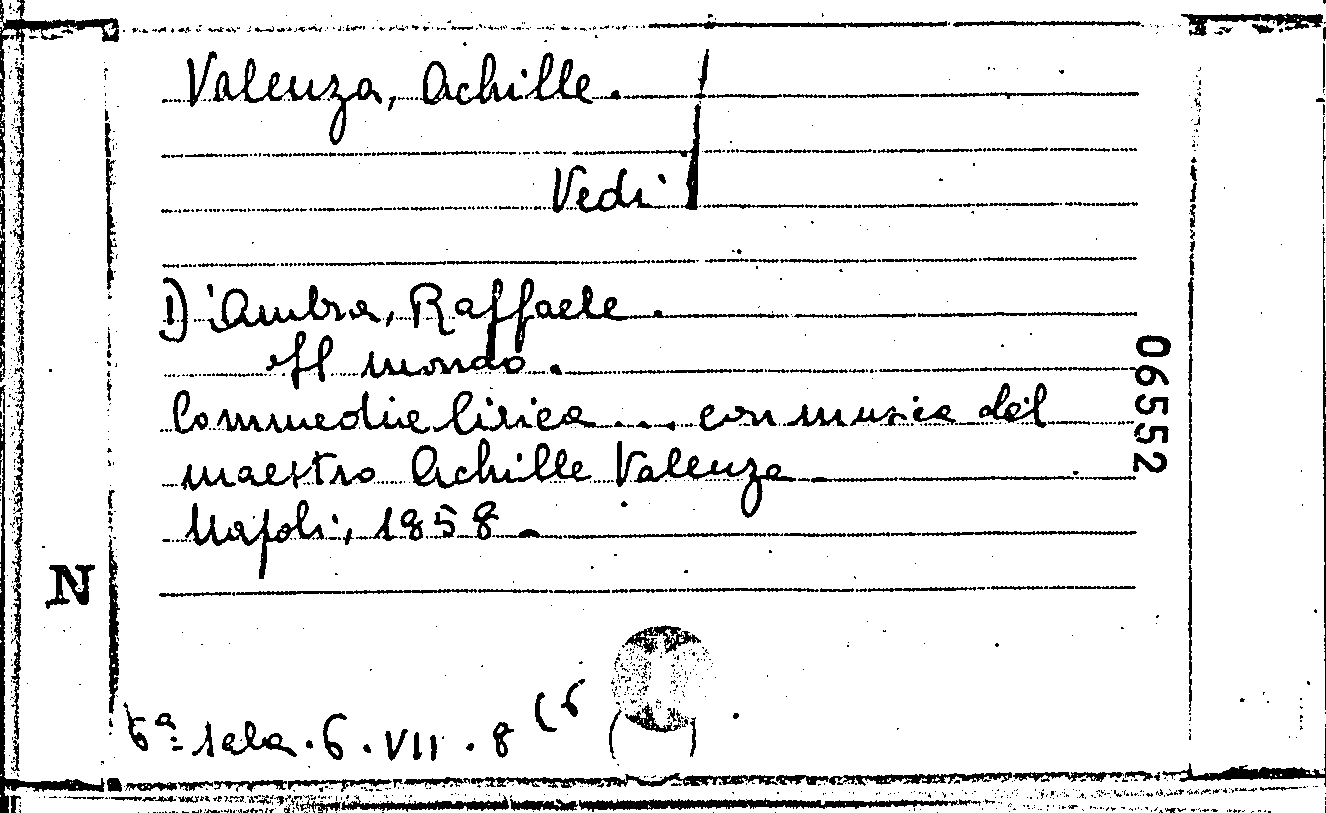 Valenza, Achille.
Vedi
D'Ambra, Raffaele.
Il mondo.
Commedia lirica ... con musica del
maestro Achille Valenza
Napoli, 1858.
06552
N
6ª sala. 6. VII. 8 (6